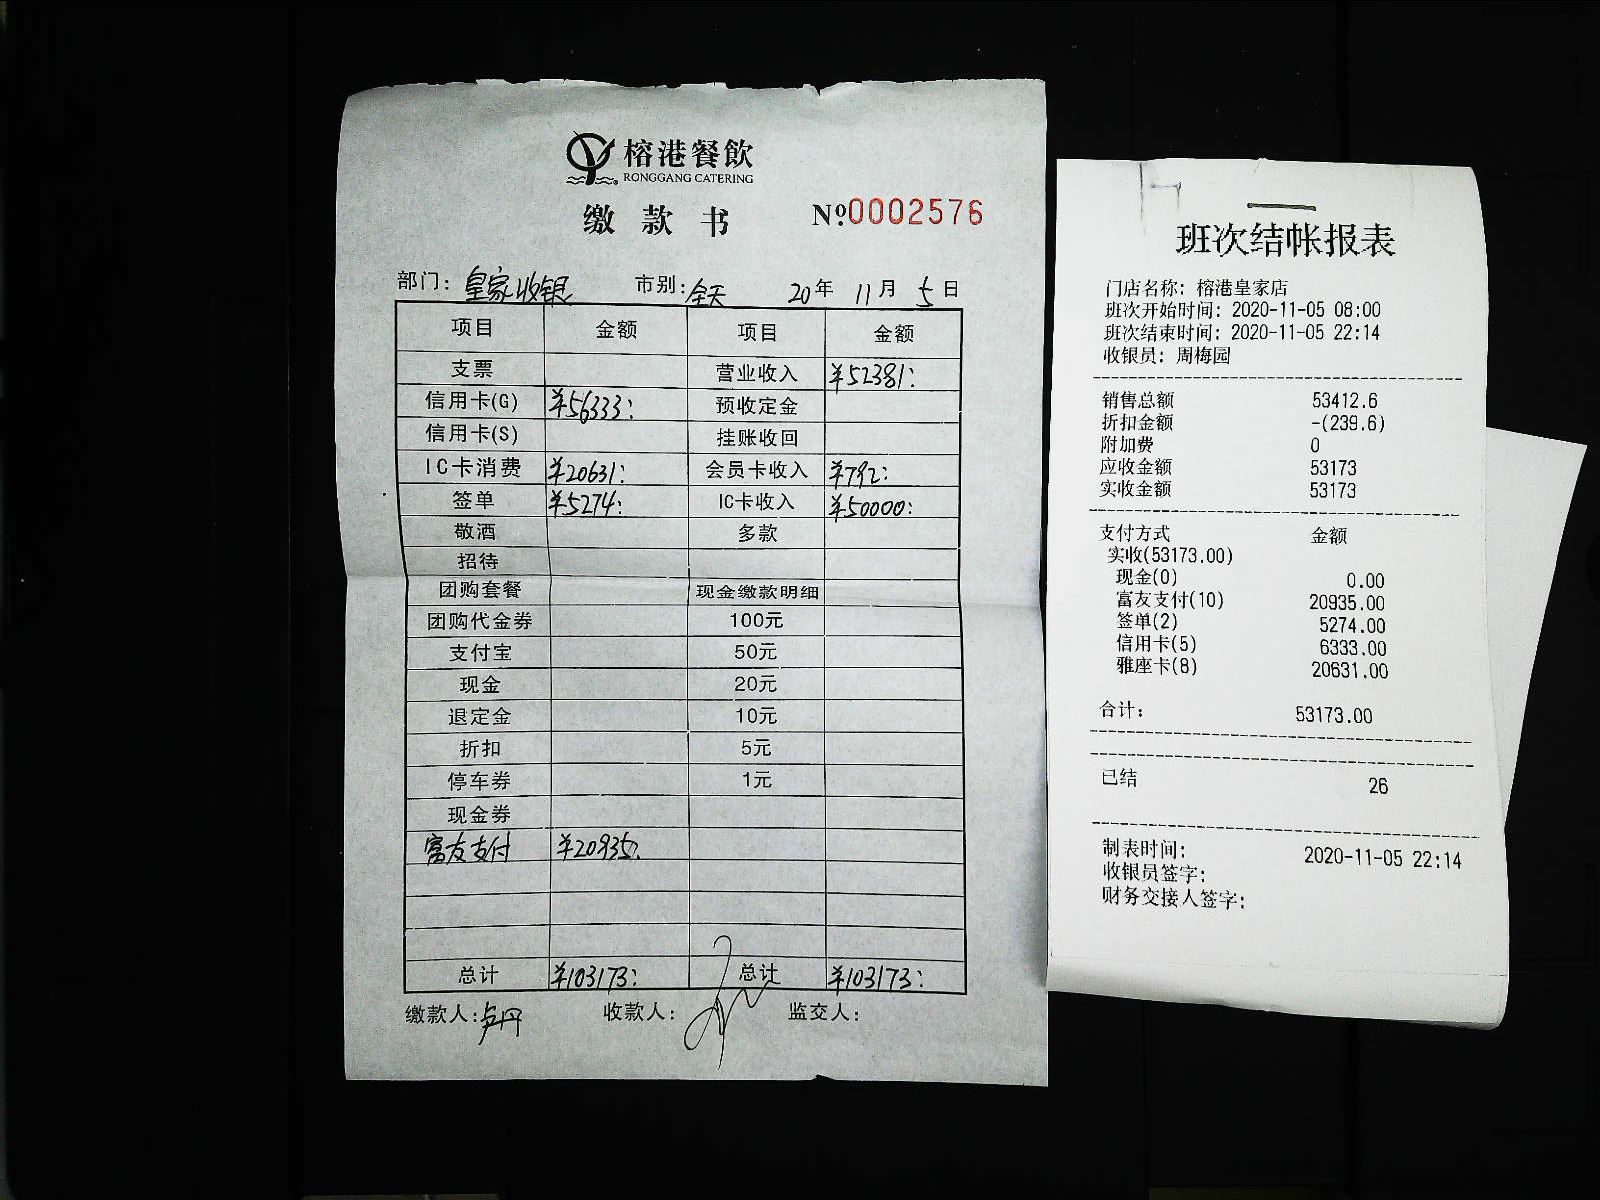 榕港餐飲
RONGGANG CATERING
缴款书 №0002576
部门：皇家收银 市别：全天 20年 11月 5日
项目 金额 项目 金额
支票 营业收入 ¥52381：
信用卡(G) ¥56333： 预收定金
信用卡(S) 挂账收回
IC卡消费 ¥20631： 会员卡收入 ¥792：
签单 ¥5274： IC卡收入 ¥50000：
敬酒 多款
招待
团购套餐 现金缴款明细
团购代金券 100元
支付宝 50元
现金 20元
退定金 10元
折扣 5元
停车券 1元
现金券
富友支付 ¥20935：
总计 ¥103173： 总计 ¥103173：
缴款人：卢丹 收款人： 监交人：
班次结帐报表
门店名称：榕港皇家店
班次开始时间：2020-11-05 08:00
班次结束时间：2020-11-05 22:14
收银员：周梅园
销售总额 53412.6
折扣金额 -(239.6)
附加费 0
应收金额 53173
实收金额 53173
支付方式 金额
实收(53173.00)
现金(0) 0.00
富友支付(10) 20935.00
签单(2) 5274.00
信用卡(5) 6333.00
雅座卡(8) 20631.00
合计： 53173.00
已结 26
制表时间： 2020-11-05 22:14
收银员签字：
财务交接人签字：